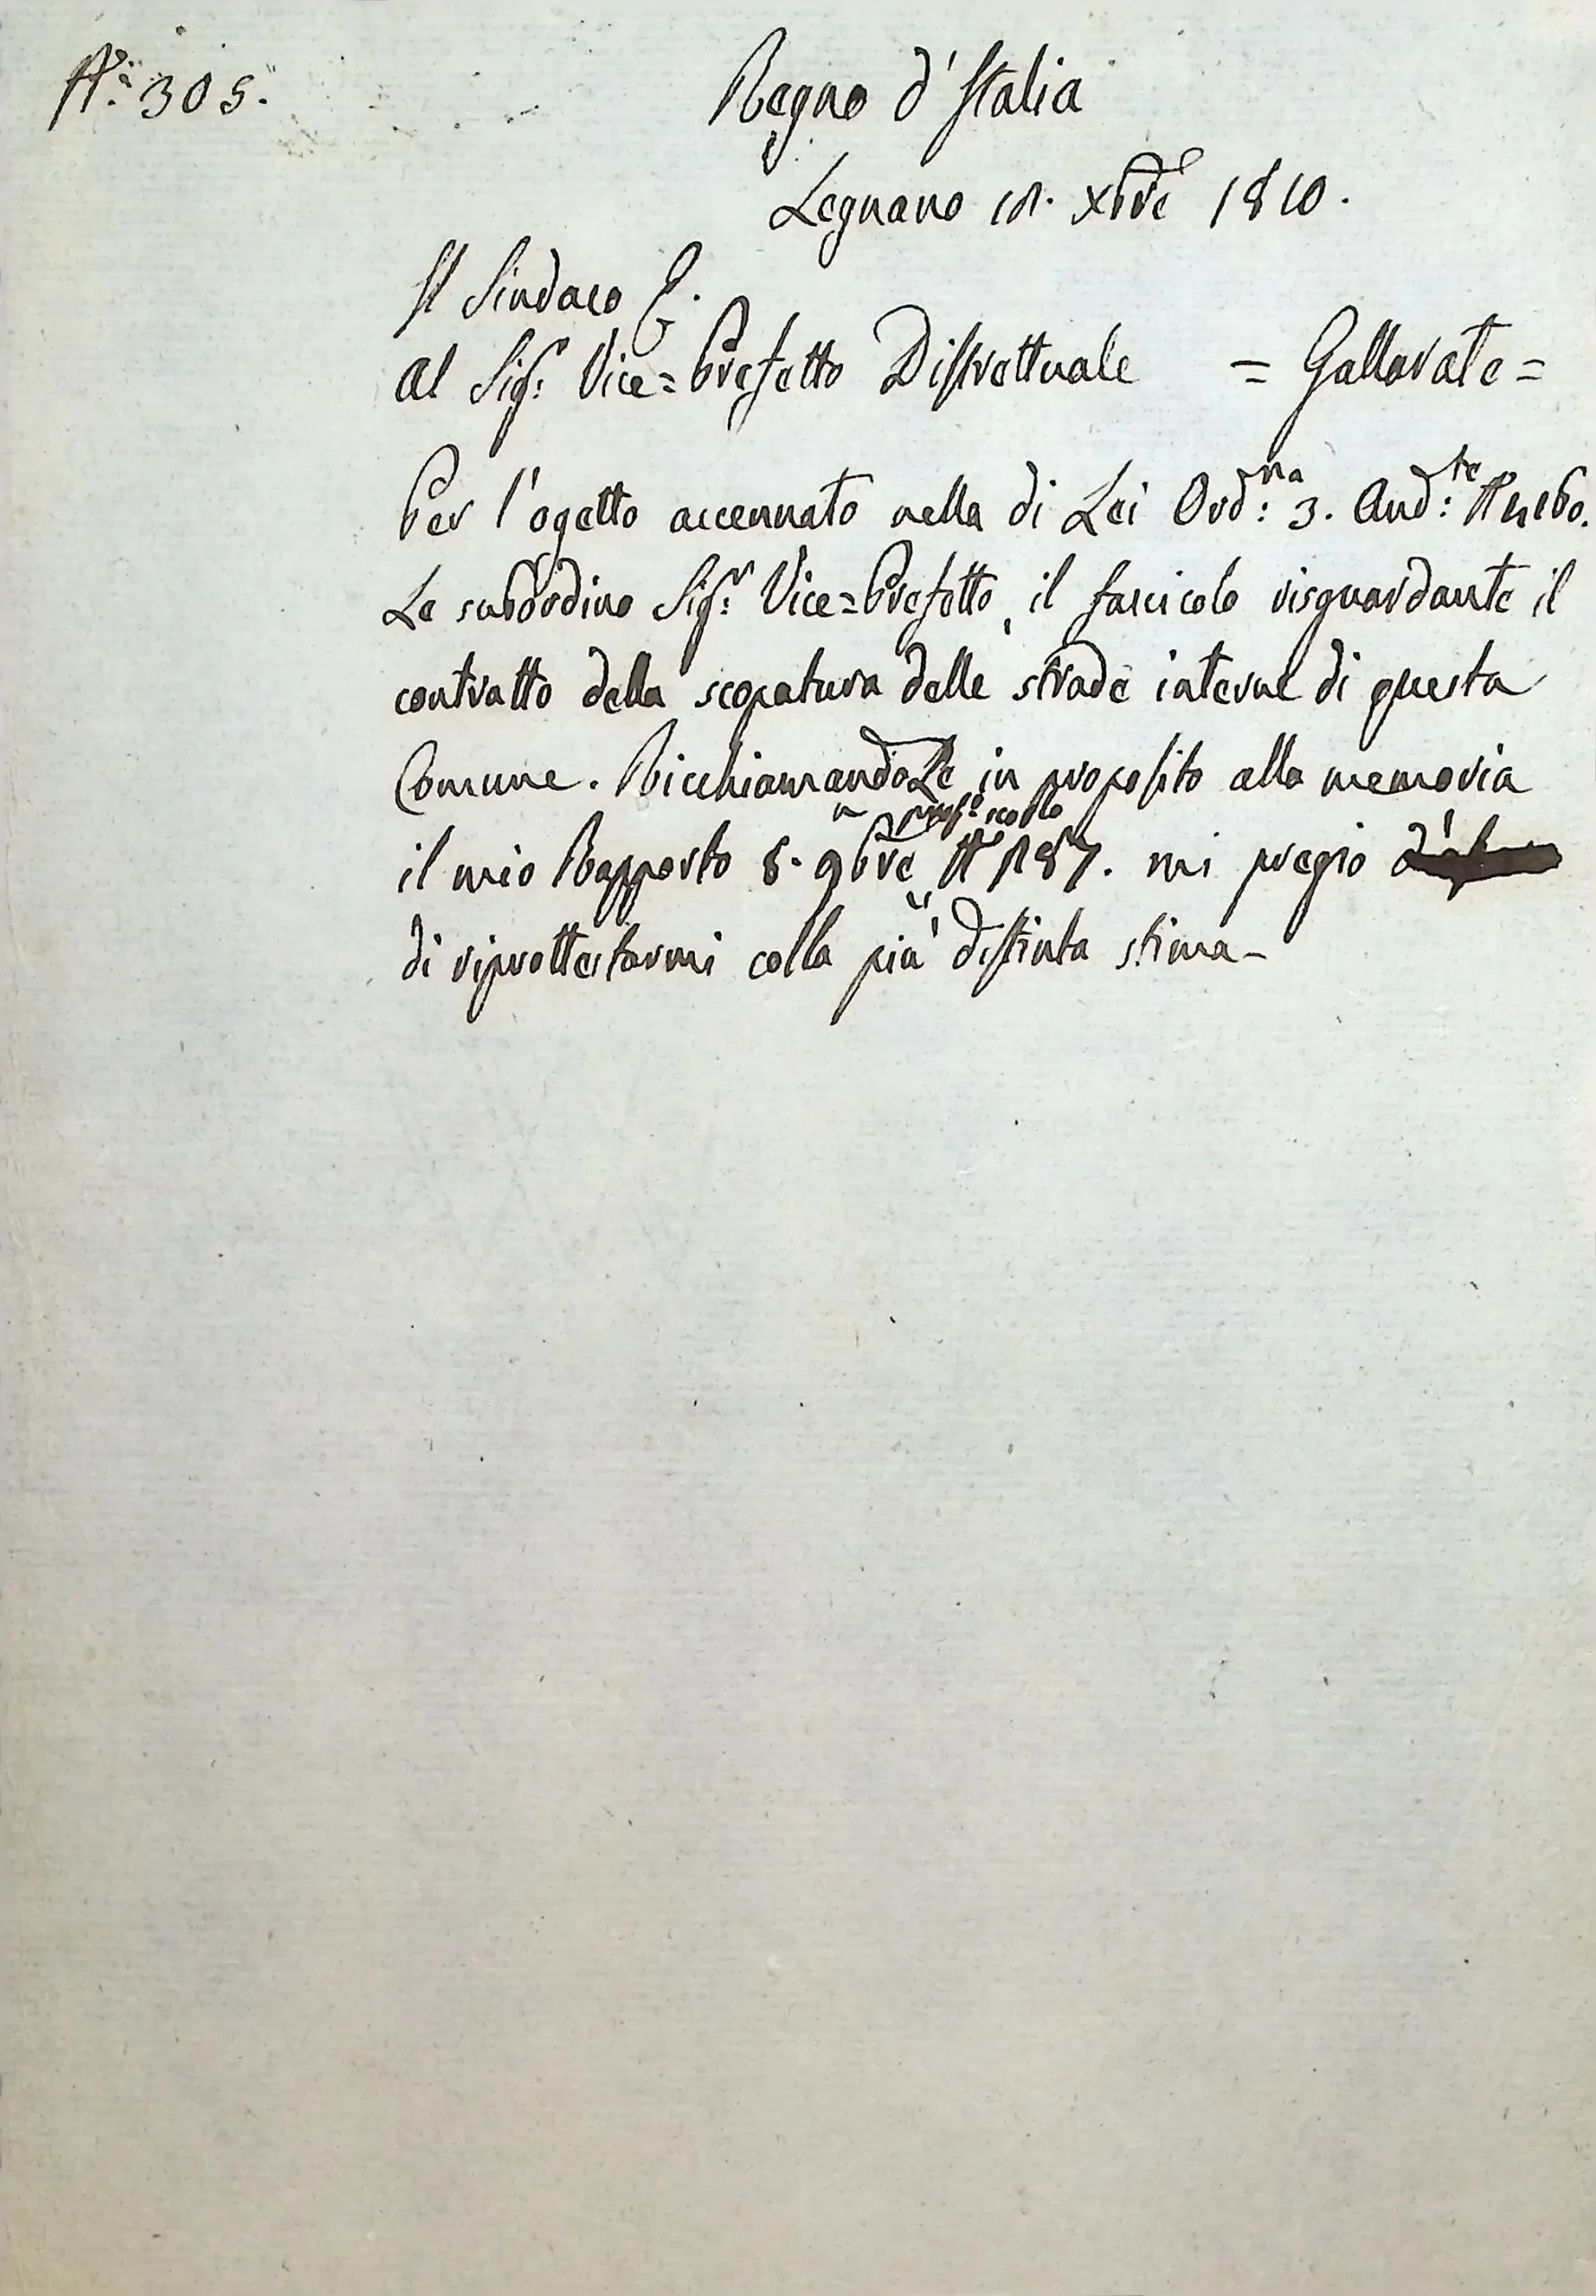 N.° 305.
Regno d'Italia
Legnano 18. xbre 1810.
Il Sindaco
Al Sigr: Vice=Prefetto Distrettuale = Gallarate =
Per l'ogetto accennato nella di Lei Ord:na 3. And:te N
Le subordino Sigr: Vice=Prefetto, il fascicolo risguardante il
contratto della scopatura delle strade interne di questa
Comune. RicchiamandoLe in proposito alla memoria
pross:o scorso
il mio Rapporto 8. 9bre N 287. mi pregio
di riprottestarmi colla più distinta stima-